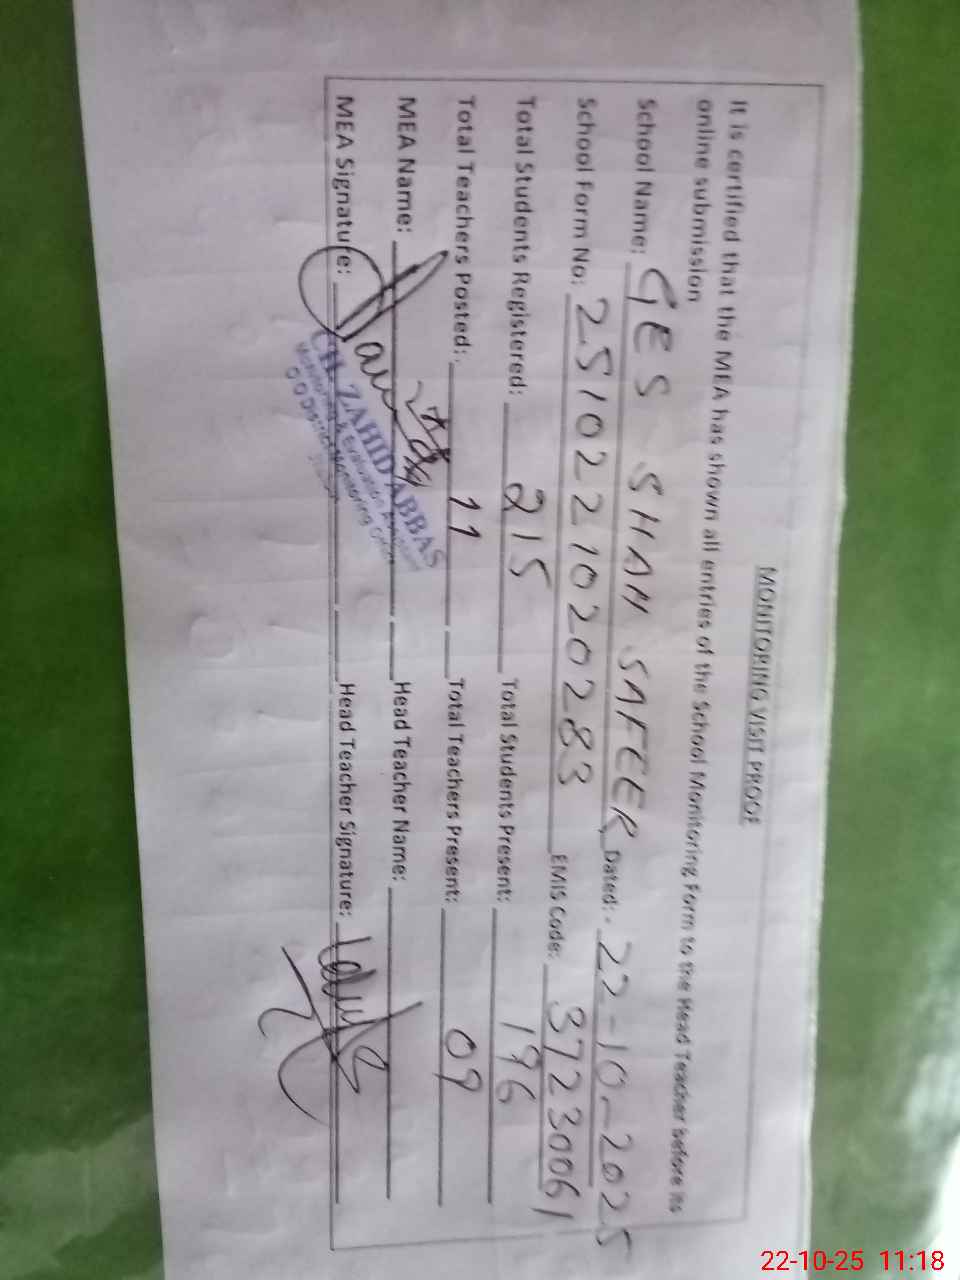 MONITORING VISIT PROOF
It is certified that the MEA has shown all entries of the School Monitoring Form to the Head Teacher before its
online submission
School Name: GES SHAH SAFEER Dated: - 22-10-2025
School Form No: 25102210202083 EMIS Code: 37230061
Total Students Registered: 215 Total Students Present: 196
Total Teachers Posted: 11 Total Teachers Present: 09
MEA Name: Head Teacher Name:
MEA Signature: Head Teacher Signature:
CH. ZAHID ABBAS
Monitoring & Evaluation Assistant
O/O District Monitoring Officer
22-10-25 11:18